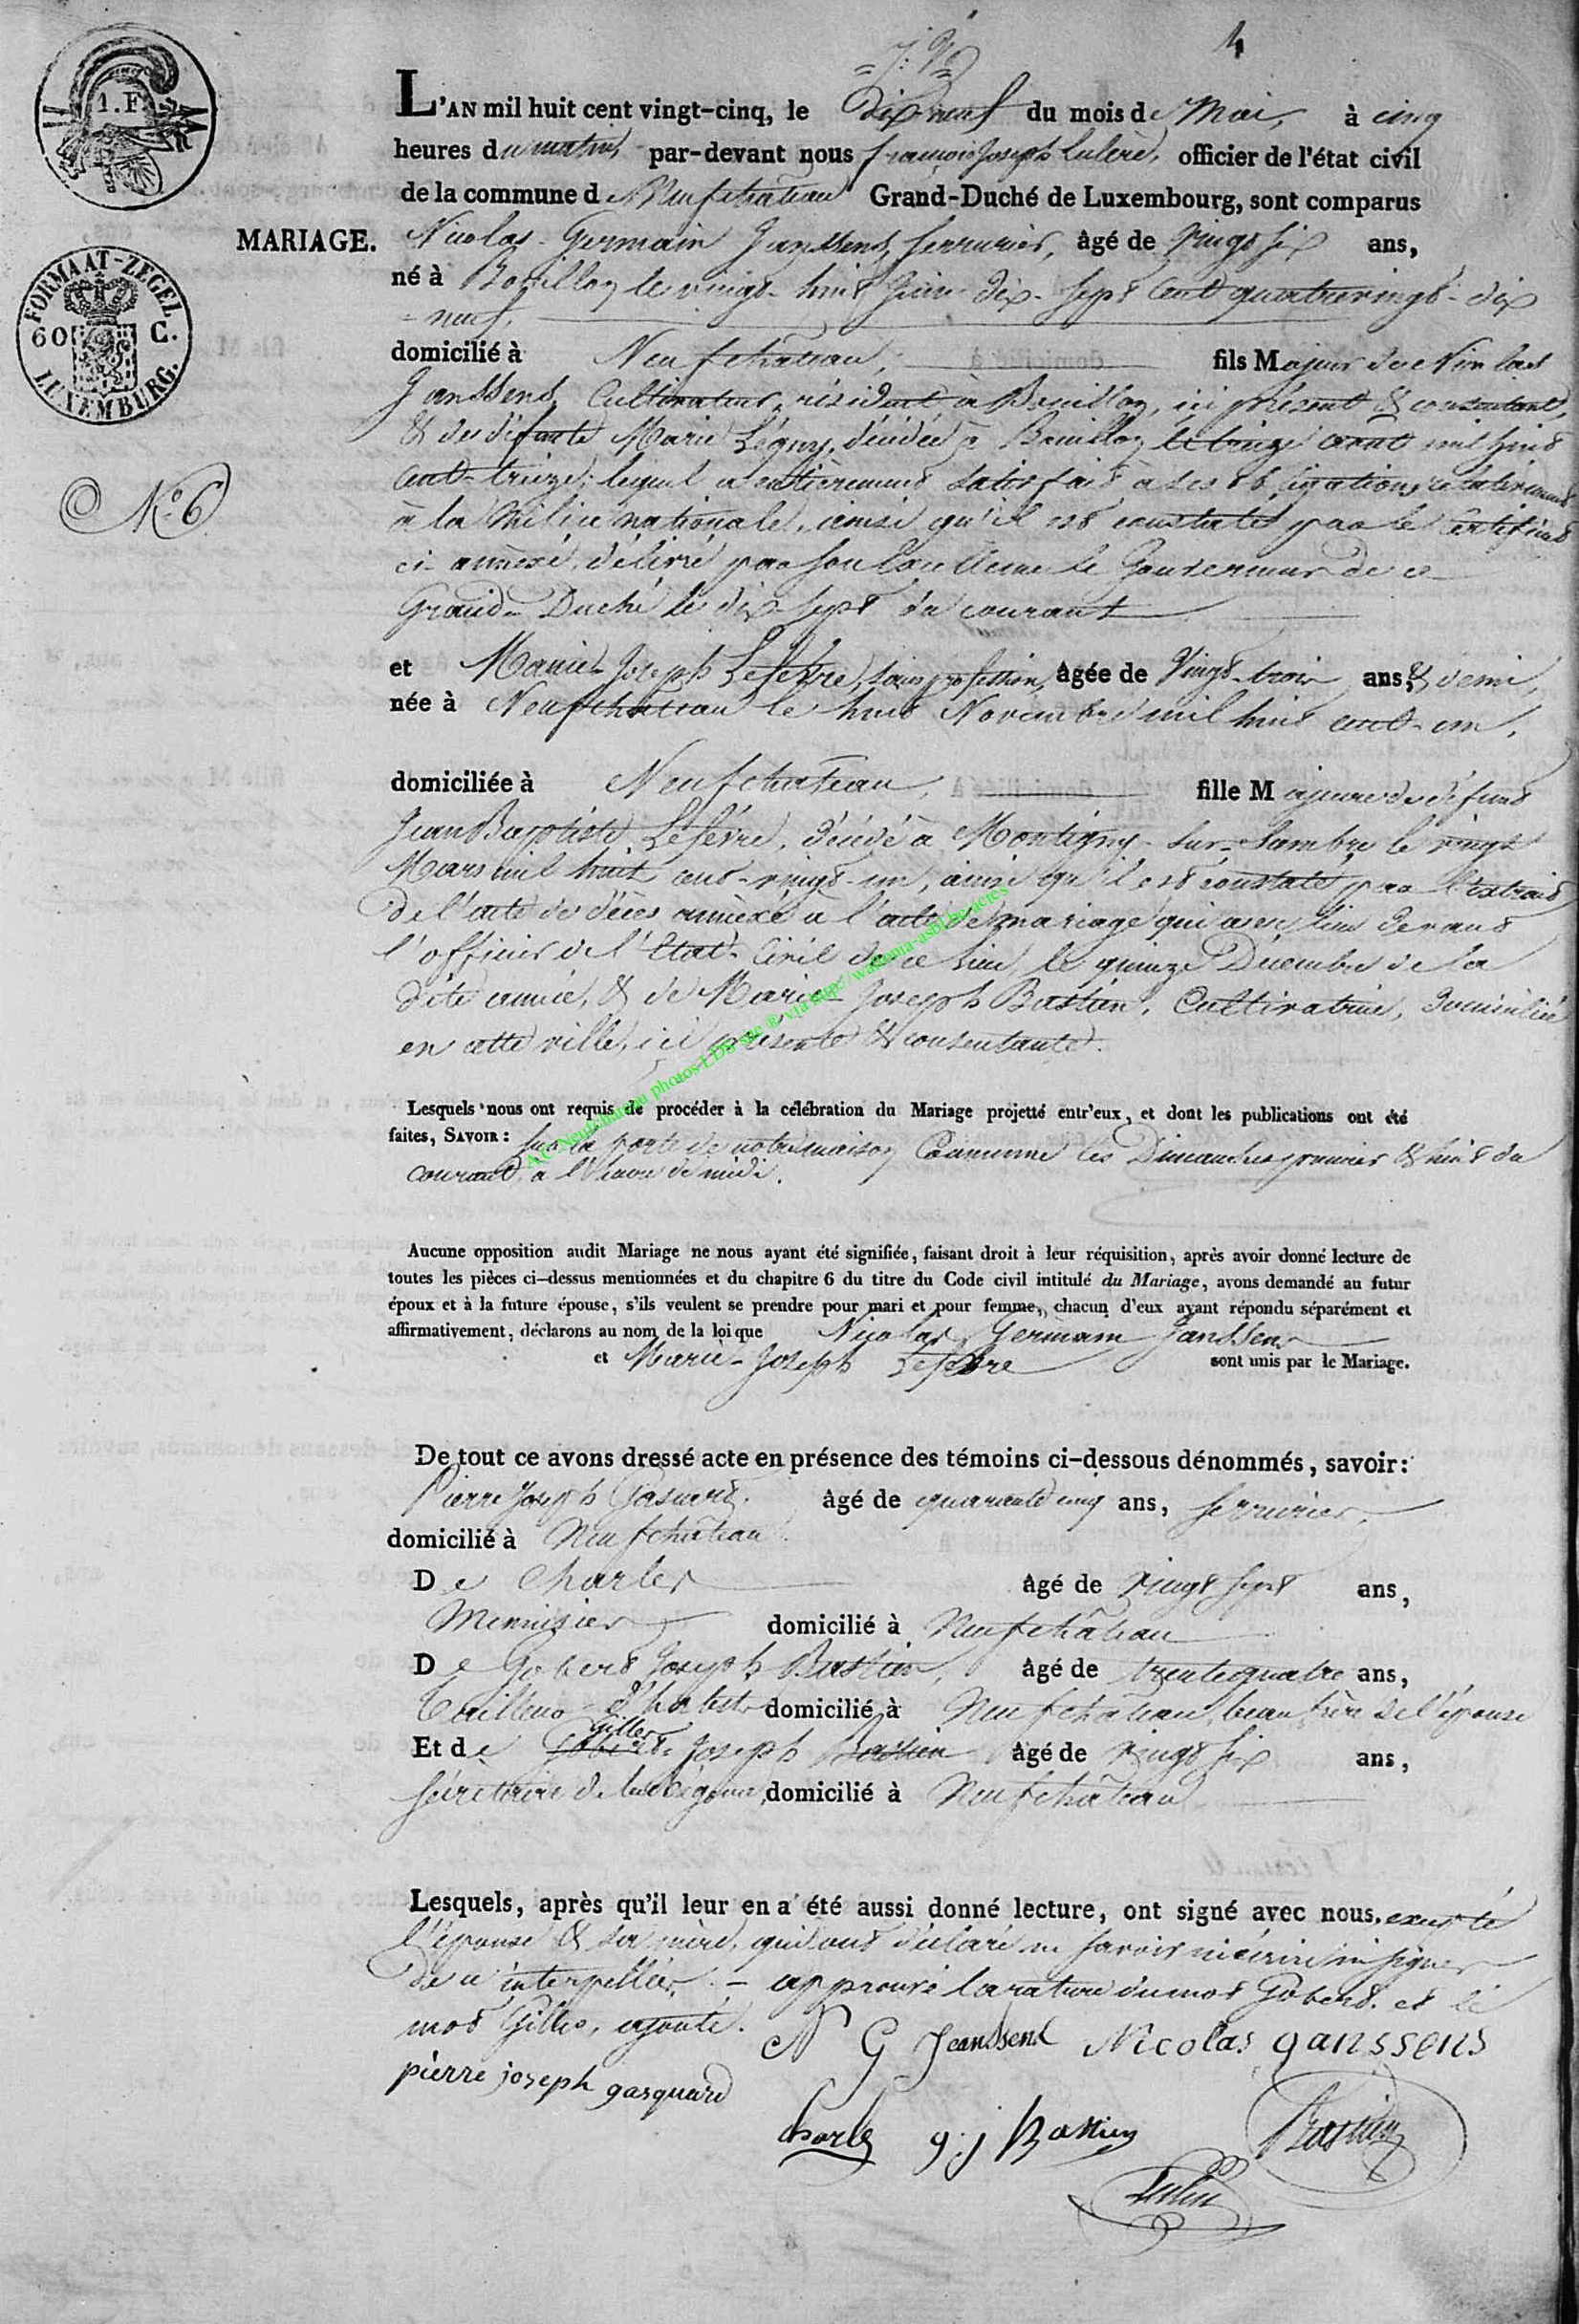 4
1. F.
L'AN mil huit cent vingt-cinq, le Dix-neuf du mois de Mai, à cinq
heures du matin, par-devant nous françois Joseph officier de l'état civil
de la commune de Neufchateau Grand-Duché de Luxembourg, sont comparus
MARIAGE. Nicolas-Germain Janssens, Serrurier, âgé de Vingt six ans,
FORMAAT-ZEGEL
60 C.
LUXEMBURG.
né à Bouillon le vingt-huit Juin dix-sept Cent quatrevingt-dix
=neuf,
domicilié à Neufchateau, fils Majeur de Nicolas
Janssens, Cultivateur, résidant à Bouillon, ici présent & consentant,
& de défunte Marie Légny, décédée à Bouillon le août mil huit
N.º 6
cent-treize; lequel a entièrement satisfait à ses obligations relativement
à la Milice nationale, ainsi qu'il est constaté par le Certificat
ci-annexé, délivré par Son Excellence le Gouverneur de ce
Grand-Duché le dix-sept du courant
et Marie-Joseph Lefevre, sans profession, âgée de Vingt-trois ans, & demi,
née à Neufchateau le huit Novembre mil huit cent-un,
domiciliée à Neufchateau, fille Majeure de défunt
Jean Baptiste Lefévre, décédé à Montigny-sur-Sambre le vingt
Mars mil huit cent-vingt-un, ainsi qu'il est constaté par l'extrait
de l'acte de décès annexé à l'acte de mariage qui a eu lieu devant
l'officier de l'Etat-Civil de ce lieu, le quinze Décembre de la
dite année, & de Marie-Joseph Bastien, Cultivatrice, domiciliée
en cette ville, ici présente & consentante.
A.C. Neufchateau photos LDS site ® via http://wallonia-asbl.be/actes
Lesquels nous ont requis de procéder à la célébration du Mariage projetté entr'eux, et dont les publications ont été
faites, SAVOIR: sur la porte de notre maison Commune les Dimanches premier & huit du
courant, à l'heure de midi.
Aucune opposition audit Mariage ne nous ayant été signifiée, faisant droit à leur réquisition, après avoir donné lecture de
toutes les pièces ci-dessus mentionnées et du chapitre 6 du titre du Code civil intitulé du Mariage, avons demandé au futur
époux et à la future épouse, s'ils veulent se prendre pour mari et pour femme, chacun d'eux ayant répondu séparément et
affirmativement, déclarons au nom de la loi que Nicolas Germain Janssens
et Marie-Joseph Lefebre sont unis par le Mariage.
De tout ce avons dressé acte en présence des témoins ci-dessous dénommés, savoir:
Pierre Joseph âgé de quarante cinq ans, serrurier,
domicilié à Neufchâteau.
De Charles âgé de vingt sept ans,
Menuisier domicilié à Neufchâteau
De Gobert Joseph Bastien, âgé de trente quatre ans,
Tailleur d'habits domicilié à Neufchâteau, beau frère de l'épouse
Gilles
Et de Gobert Joseph Bastien âgé de vingt six ans,
secrétaire de la Régence, domicilié à Neufchâteau
Lesquels, après qu'il leur en a été aussi donné lecture, ont signé avec nous. excepté
l'épouse & sa mère, qui ont déclaré ne savoir ni écrire ni signer
de ce interpellées. - approuvé la rature du mot Gobert. et le
mot Gilles, ajouté.
N G Janssens Nicolas ganssens
pierre joseph gasquard
Charles g. j Bastien Bastien